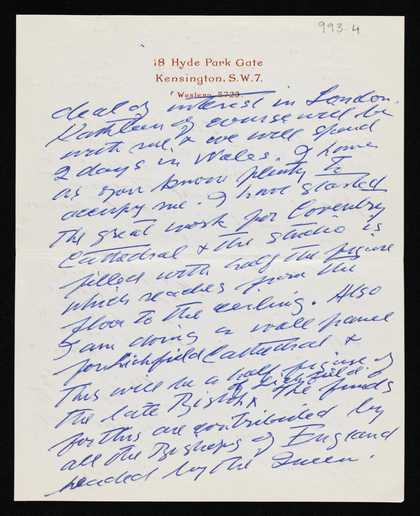 993.4
18 Hyde Park Gate
Kensington, S.W.7.
Western 5723
deal of interest in London.
Kathleen of course will be
with me & we will spend
2 days in Wales. I have
as you know plenty to
occupy me. I have started
the great work for Coventry
Cathedral & the studio is
filled with half the figure
which reaches from the
floor to the ceiling. Also
I am doing a wall panel
for Lichfield Cathedral &
this will be a half figure of
the late Bishop of Lichfield. The funds
for this are contributed by
all the Bishops of England
headed by the Queen.